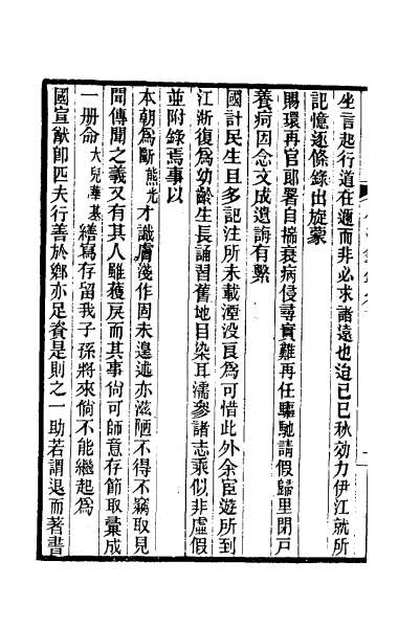 坐言起行道在邇而非必求諸遠也迨已巳秋効力伊江就所
記憶逐條錄出旋蒙
賜環再官郞署自揣衰病侵尋實難再任驅馳請假歸里閉戸
養疴因念文成遺誨有繫
國計民生且多記注所未載湮没良爲可惜此外余宦遊所到
江浙復爲幼齡生長誦習舊地目染耳濡參諸志乘似非虛假
並附錄焉事以
本朝爲斷熊光才識膚淺作固未遑述亦滋陋不得不竊取見
聞傳聞之義又有其人雖獲戾而其事尙可師意存節取彙成
一册命大兒華基繕寫存留我子孫將來倘不能繼起爲
國宣猷卽匹夫行善於鄉亦足資是則之一助若謂退而著書